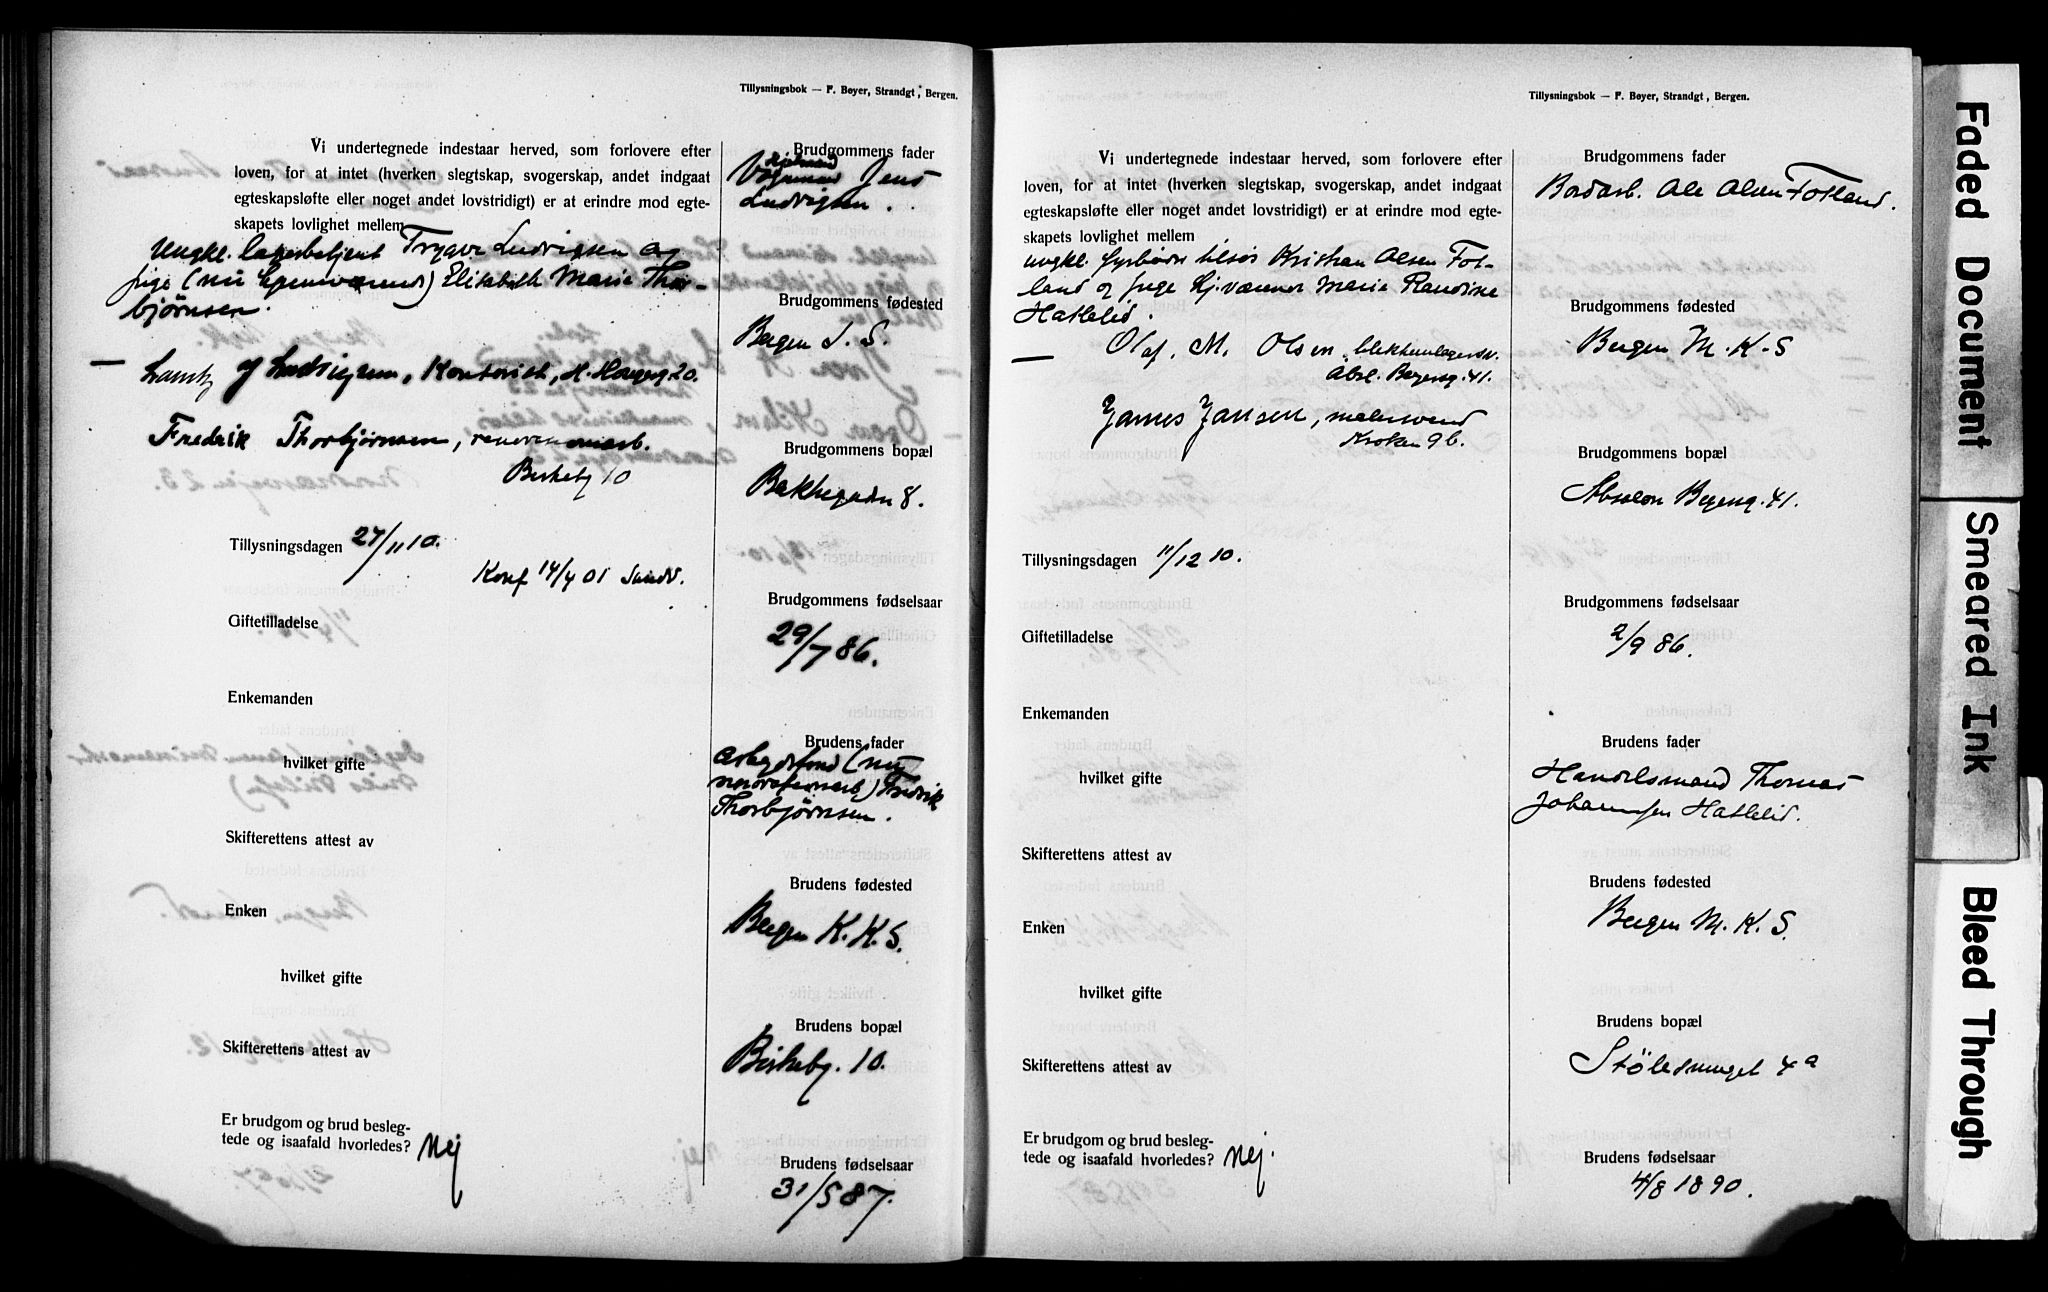 Tillysningsbok — F. Bøyer, Strandgt, Bergen.
Vi undertegnede indestaar herved, som forlovere efter
loven, for at intet (hverken slegtskap, svogerskap, andet indgaat
egteskapsløfte eller noget andet lovstridigt) er at erindre mod egte-
skapets lovlighet mellem
Ungkl. Trygve Ludvigsen og
pige (nu hjemværend) Elisabeth Marie Thor-
bjørnsen.
— Ludvigsen, Kontorist, H. Haugeg 20.
Fredrik Thorbjørnsen, renovationsarb.
Birkebg 10
Tillysningsdagen 27/11 10.
Konf 14/4 01 Sandv.
Giftetilladelse
Enkemanden
hvilket gifte
Skifterettens attest av
Enken
hvilket gifte
Skifterettens attest av
Er brudgom og brud besleg-
tede og isaafald hvorledes? Nej
Brudgommens fader
Jens
Ludvigsen.
Brudgommens fødested
Bergen S. S.
Brudgommens bopæl
Bakkegaden 8.
Brudgommens fødselsaar
29/7 86.
Brudens fader
(nu
renovationsarb.) Fredrik
Thorbjørnsen.
Brudens fødested
Bergen K. K. S.
Brudens bopæl
Birkebg. 10.
Brudens fødselsaar
31/5 87.
Tillysningsbok — F. Bøyer, Strandgt, Bergen.
Vi undertegnede indestaar herved, som forlovere efter
loven, for at intet (hverken slegtskap, svogerskap, andet indgaat
egteskapsløfte eller noget andet lovstridigt) er at erindre mod egte-
skapets lovlighet mellem
Ungkl. fyrbøder tilsjøs Kristian Olsen Fot-
land og pige hj.værende Marie Randine
Hatlelid.
— Olaf. M. Olsen, blikkenslagersv.
Absl. Beyersg. 41.
James Jansen, malersvend
Kroken 9 b.
Tillysningsdagen 11/12 10.
Giftetilladelse
Enkemanden
hvilket gifte
Skifterettens attest av
Enken
hvilket gifte
Skifterettens attest av
Er brudgom og brud besleg-
tede og isaafald hvorledes? Nej.
Brudgommens fader
Bordarb. Ole Olsen Fotland.
Brudgommens fødested
Bergen M. K. S
Brudgommens bopæl
Absalon Beyersg. 41.
Brudgommens fødselsaar
2/9 86.
Brudens fader
Handelsmand Thomas
Johannesen Hatlelid.
Brudens fødested
Bergen M. K. S.
Brudens bopæl
Stölesmuget 4 a
Brudens fødselsaar
4/8 1890.
Faded Document
Smeared Ink
Bleed Through